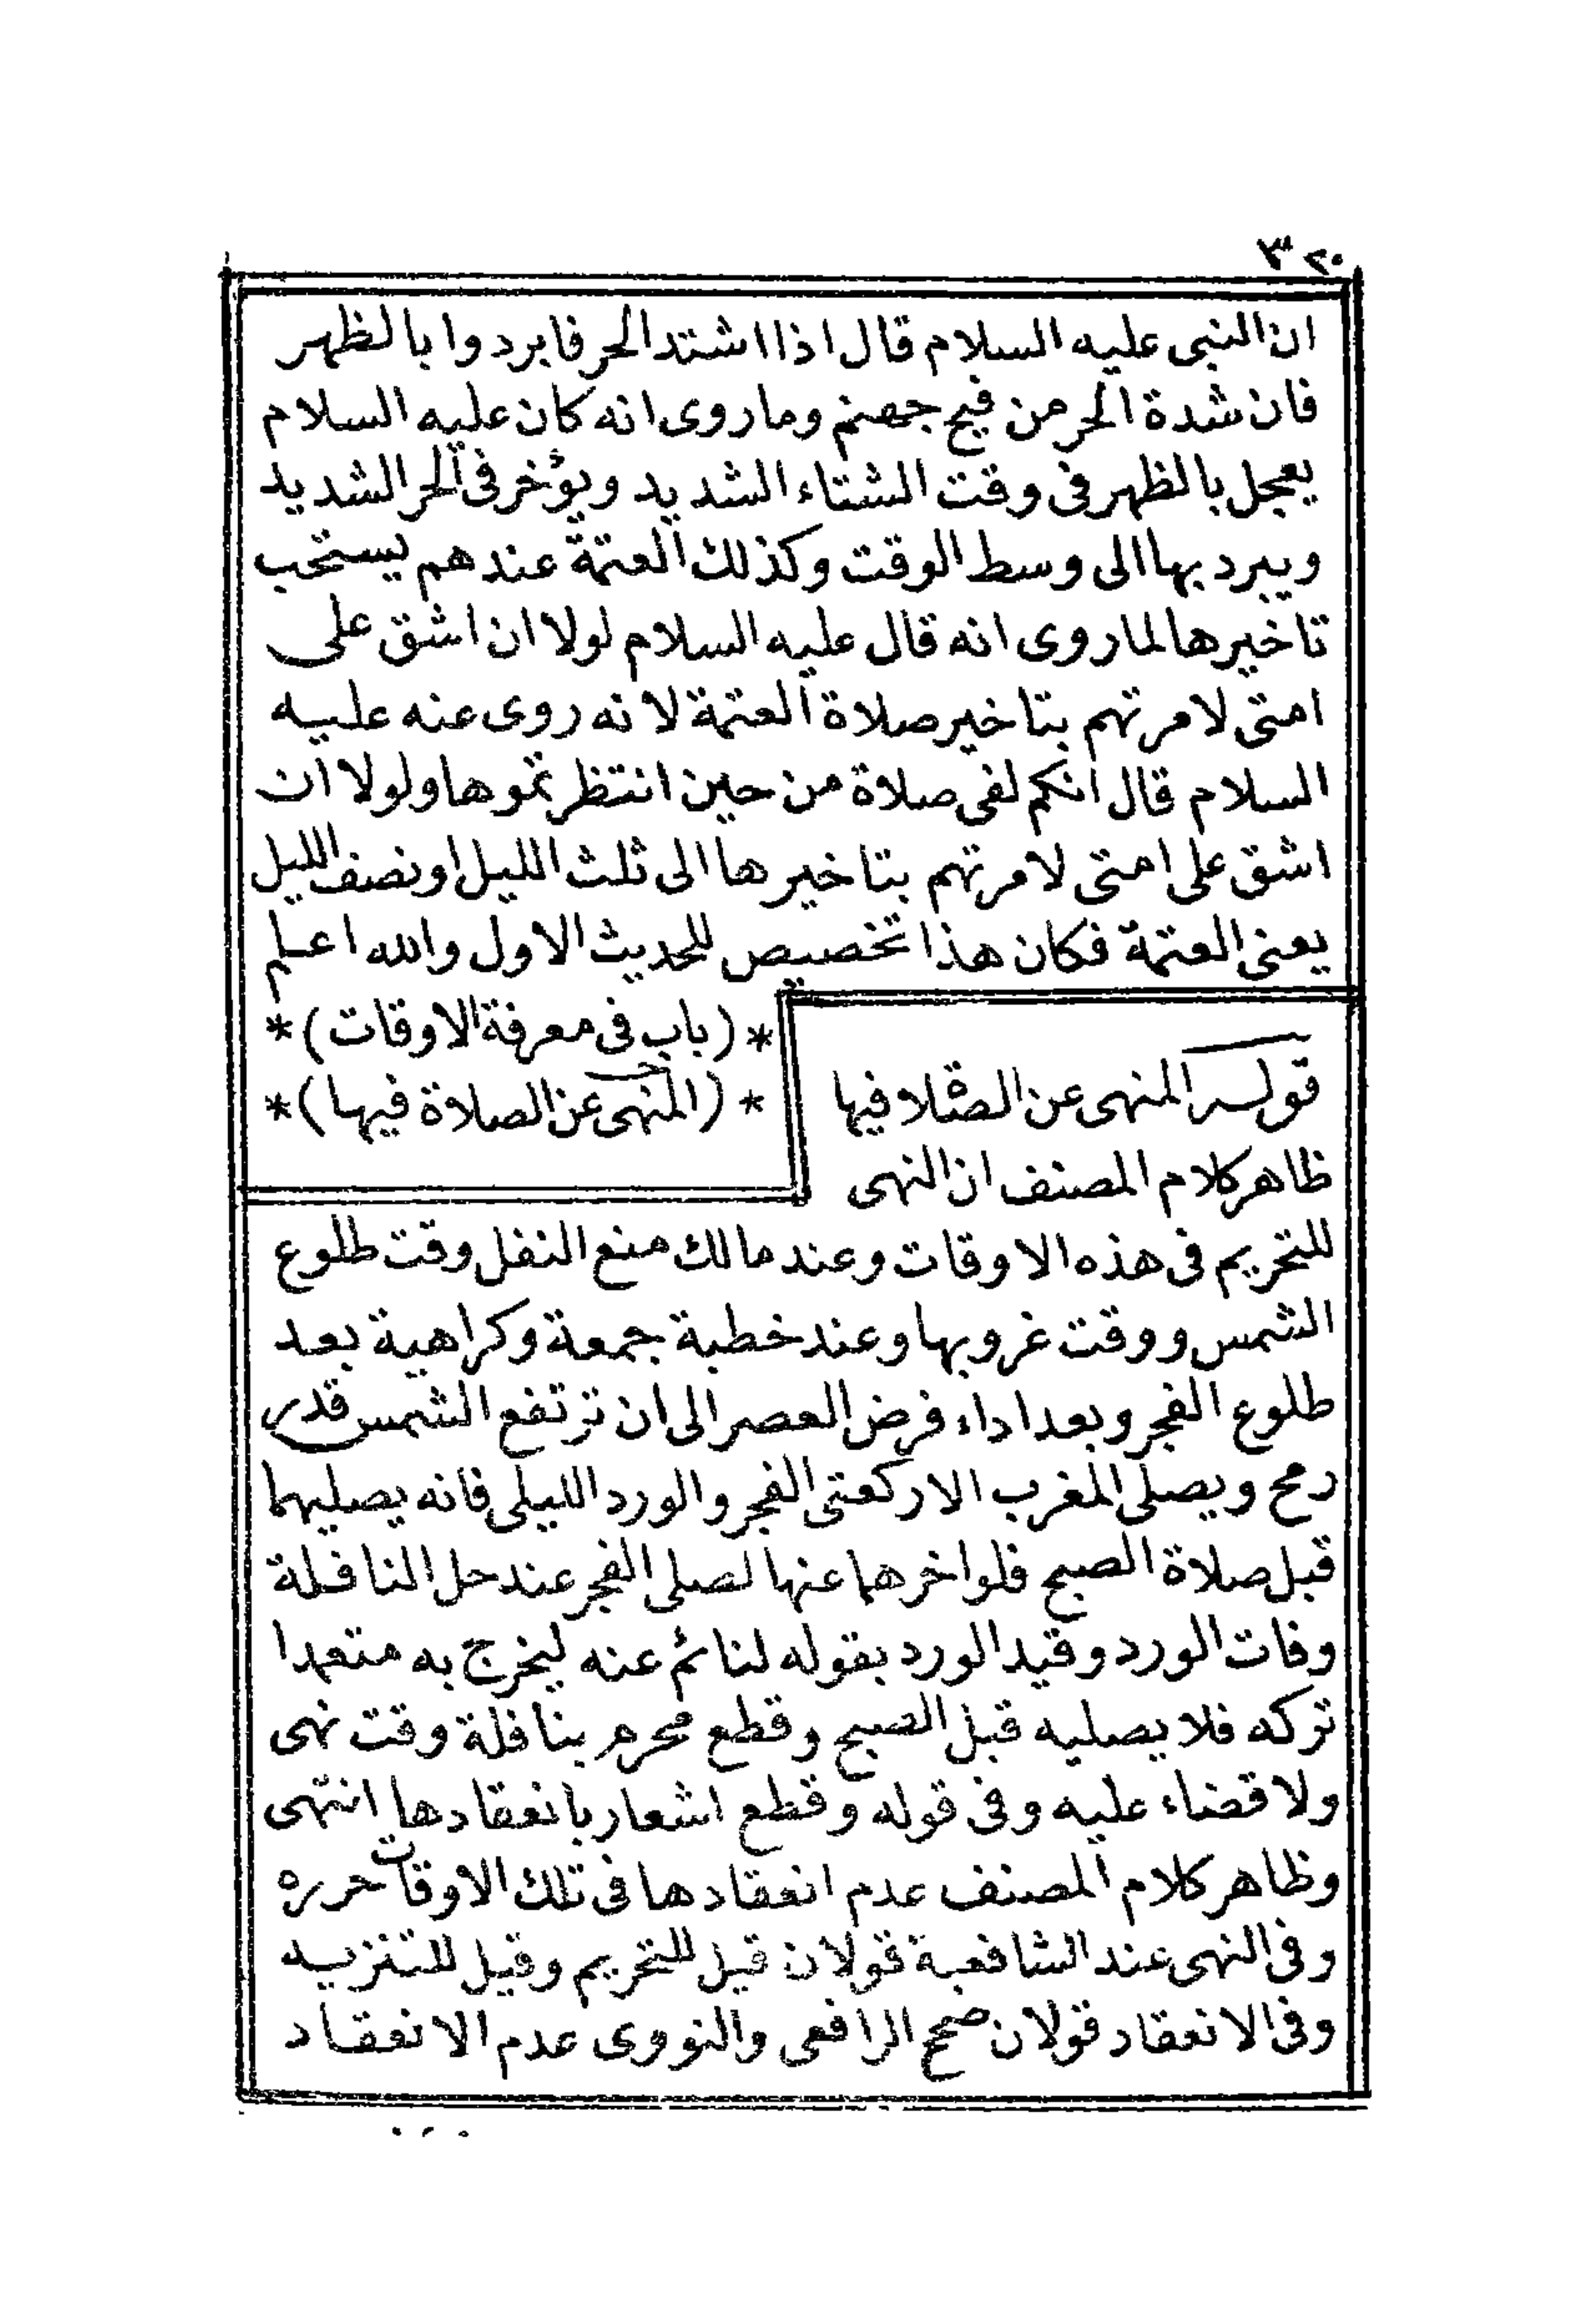 ٣٢٠
ان النبى عليه السلام قال اذا اشتد الحر فابردوا بالظهر
فان شدة الحر من فيح جهنم وما روى انه كان عليه السلام
يعجل بالظهر فى وقت الشتاء الشديد ويؤخر فى الحر الشديد
ويبرد بها الى وسط الوقت وكذلك العتمة عندهم يستحب
تاخيرها لما روى انه قال عليه السلام لولا ان اشق على
امتى لامرتهم بتاخير صلاة العتمة لانه روى عنه عليه
السلام قال انكم لفى صلاة من حين انتظرتموها ولولا ان
اشق على امتى لامرتهم بتاخيرها الى ثلث الليل او نصف الليل
يعنى العتمة فكان هذا تخصيص للحديث الاول والله اعلم
*(باب فى معرفة الاوقات)*
*(المنهى عن الصلاة فيها)*
قوله المنهى عن الصلاة فيها
ظاهر كلام المصنف ان النهى
للتحريم فى هذه الاوقات وعند مالك منع النفل وقت طلوع
الشمس ووقت غروبها وعند خطبة جمعة وكراهية بعد
طلوع الفجر وبعد اداء فرض العصر الى ان ترتفع الشمس قدر
رمح ويصلى المغرب الاركعتى الفجر والورد الليلى فانه يصليهما
قبل صلاة الصبح فلو اخرهما عنها لصلى الفجر عند حل النافلة
وفات الورد وقيد الورد بقوله لنائم عنه ليخرج به متعمدا
تركه فلا يصليه قبل الصبح وقطع محرم بنافلة وقت نهى
ولا قضاء عليه وفى قوله وقطع اشعار بانعقادها انتهى
وظاهر كلام المصنف عدم انعقادها فى تلك الاوقات حرره
وفى النهى عند الشافعية قولان قيل للتحريم وقيل للتنزيه
وفى الانعقاد قولان صحح الرافعى والنووى عدم الانعقاد